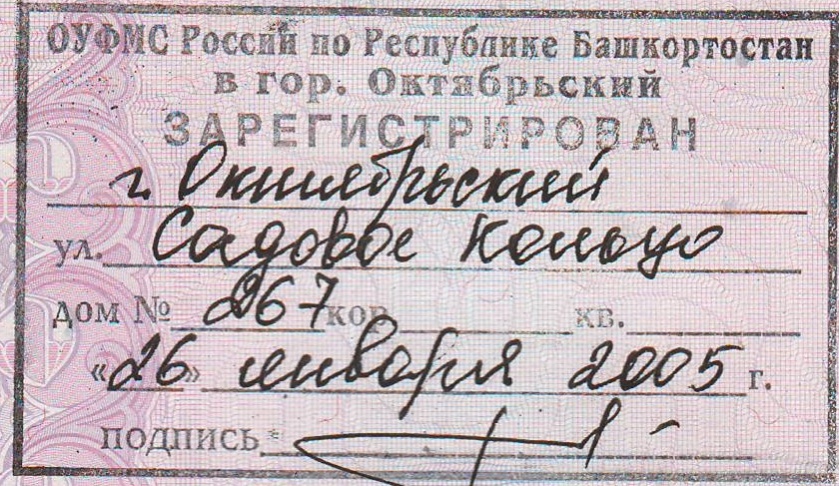 ОУФМС России по Республике Башкортостан
в гор. Октябрьский
ЗАРЕГИСТРИРОВАН
г. Октябрьский
ул. Садовое Кольцо
дом № 267 кор. кв.
«26» января 2005 г.
подпись